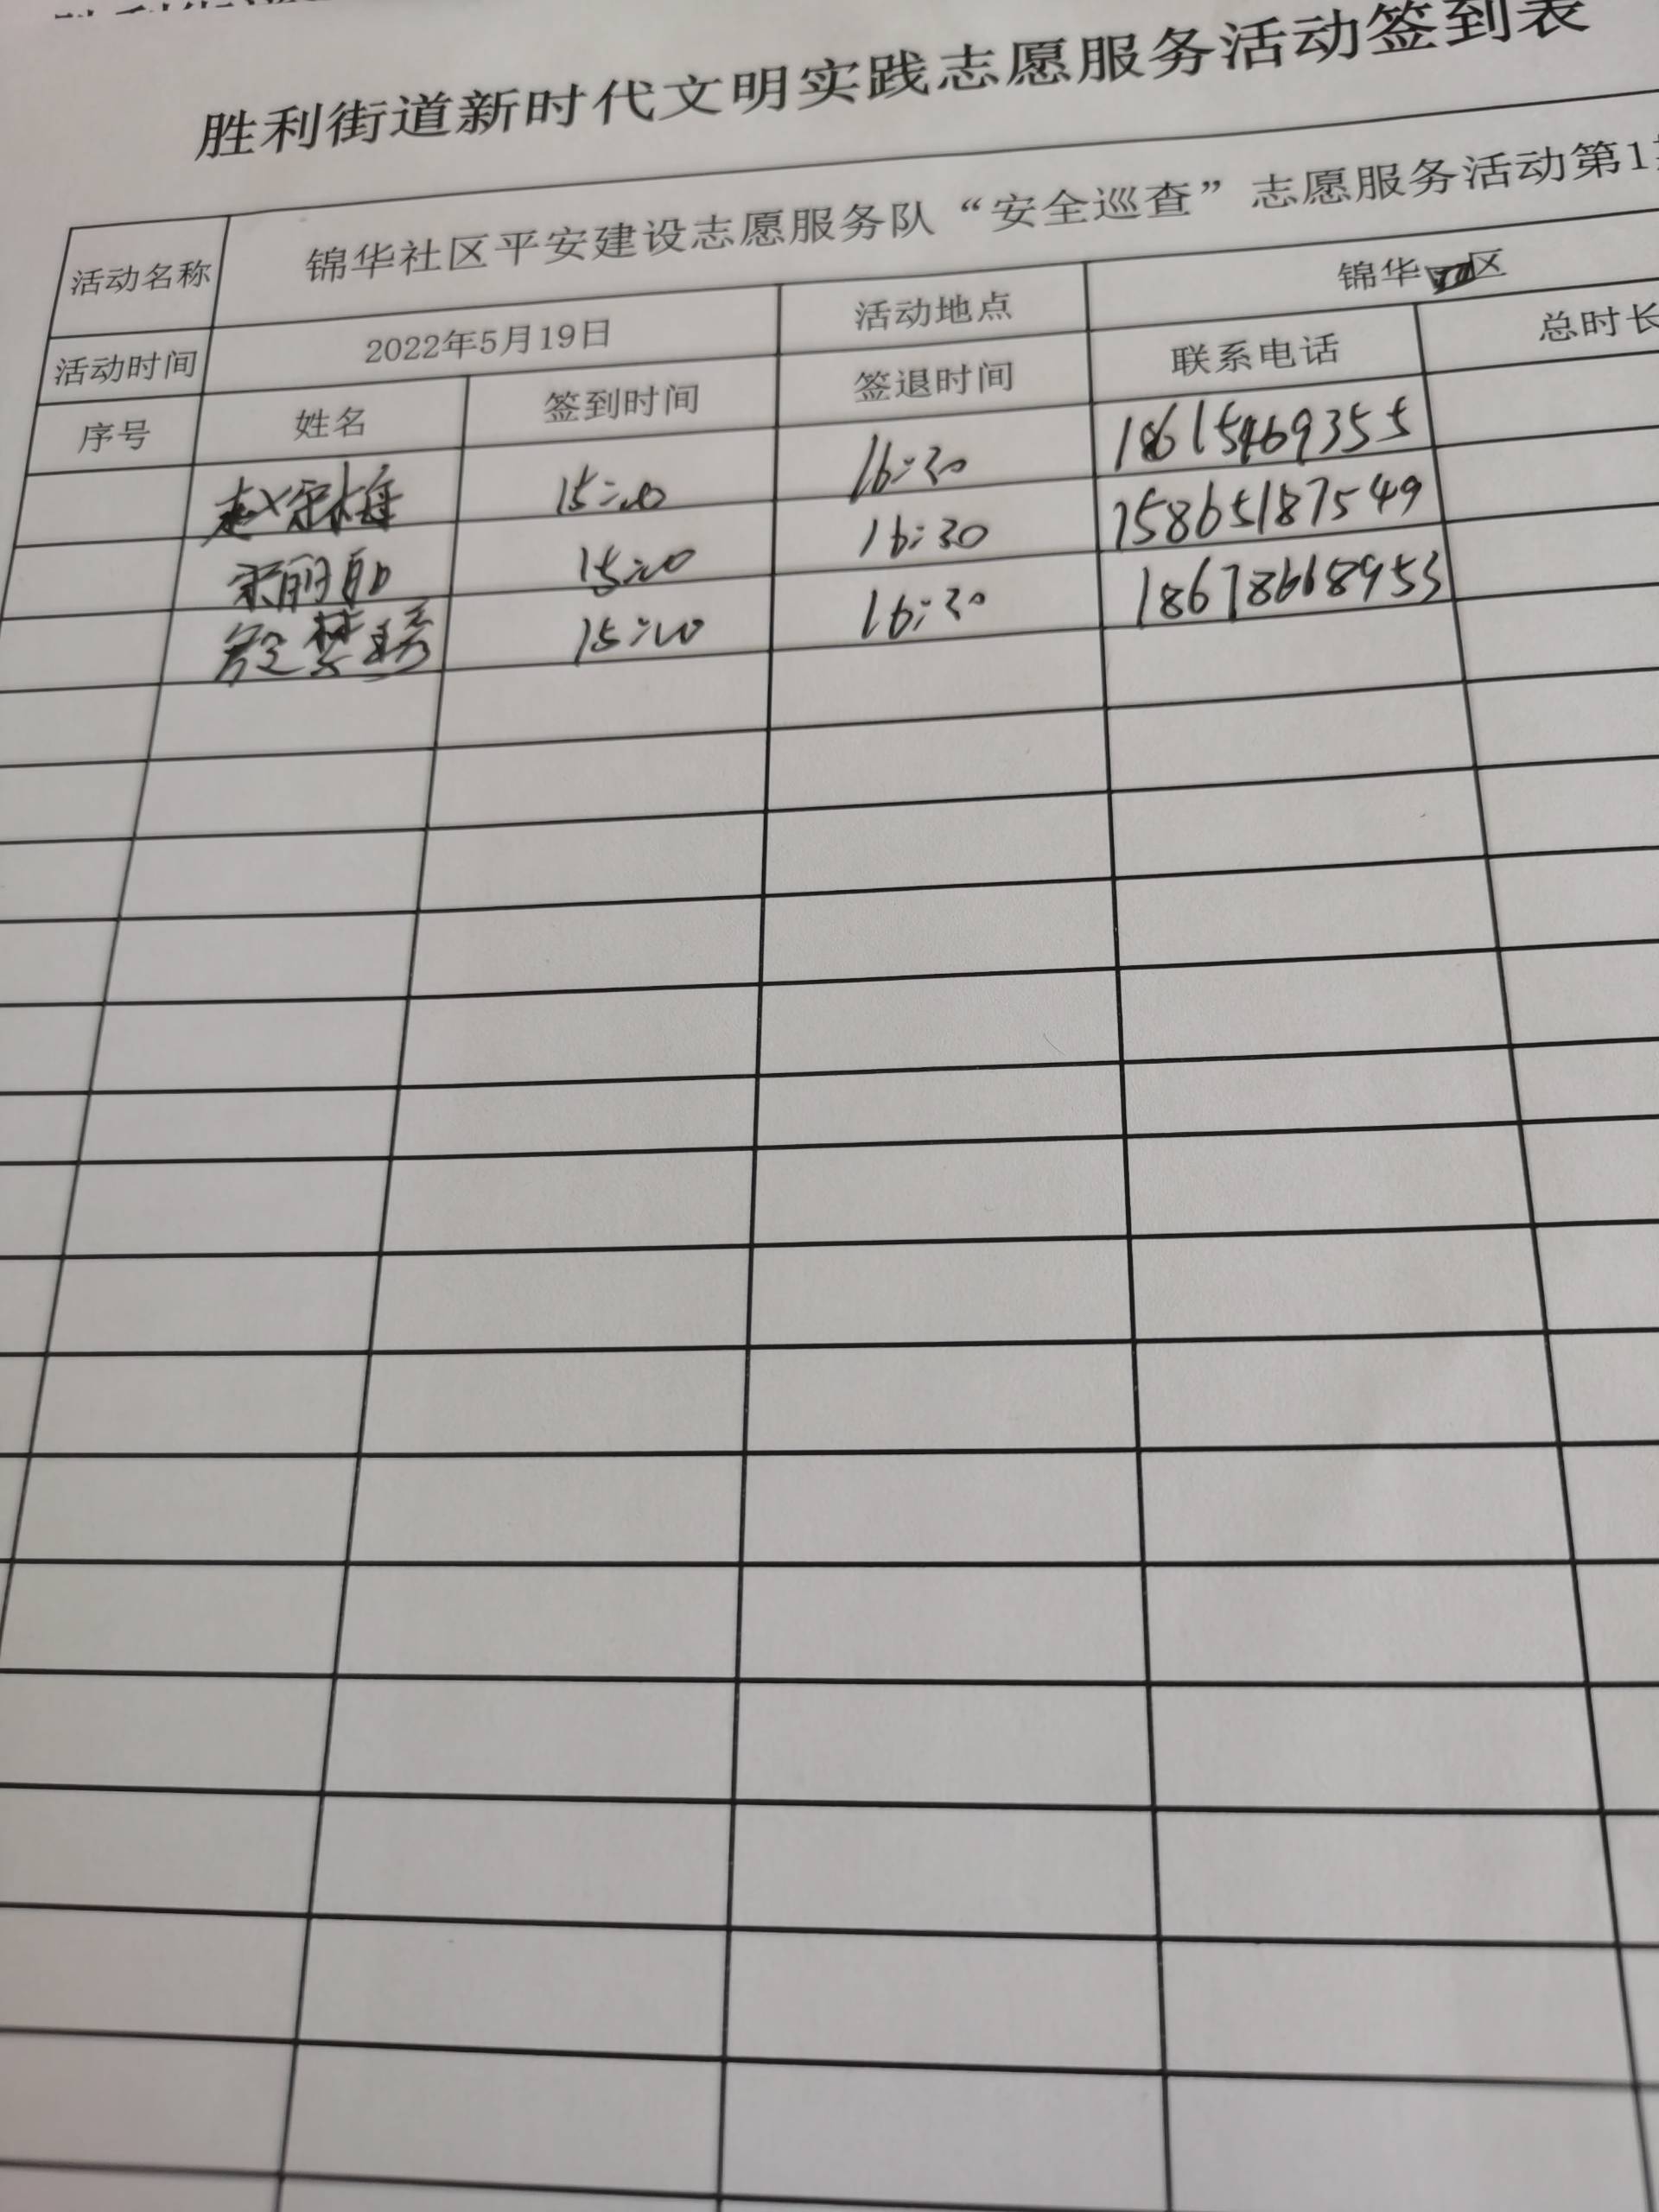 胜利街道新时代文明实践志愿服务活动签到表
活动名称 锦华社区平安建设志愿服务队“安全巡查”志愿服务活动第1
活动时间 2022年5月19日 活动地点 锦华 区
序号 姓名 签到时间 签退时间 联系电话 总时长
赵 梅 16:30 18615469355
宋丽 16:30 15865187549
梦 16:30 18678668953